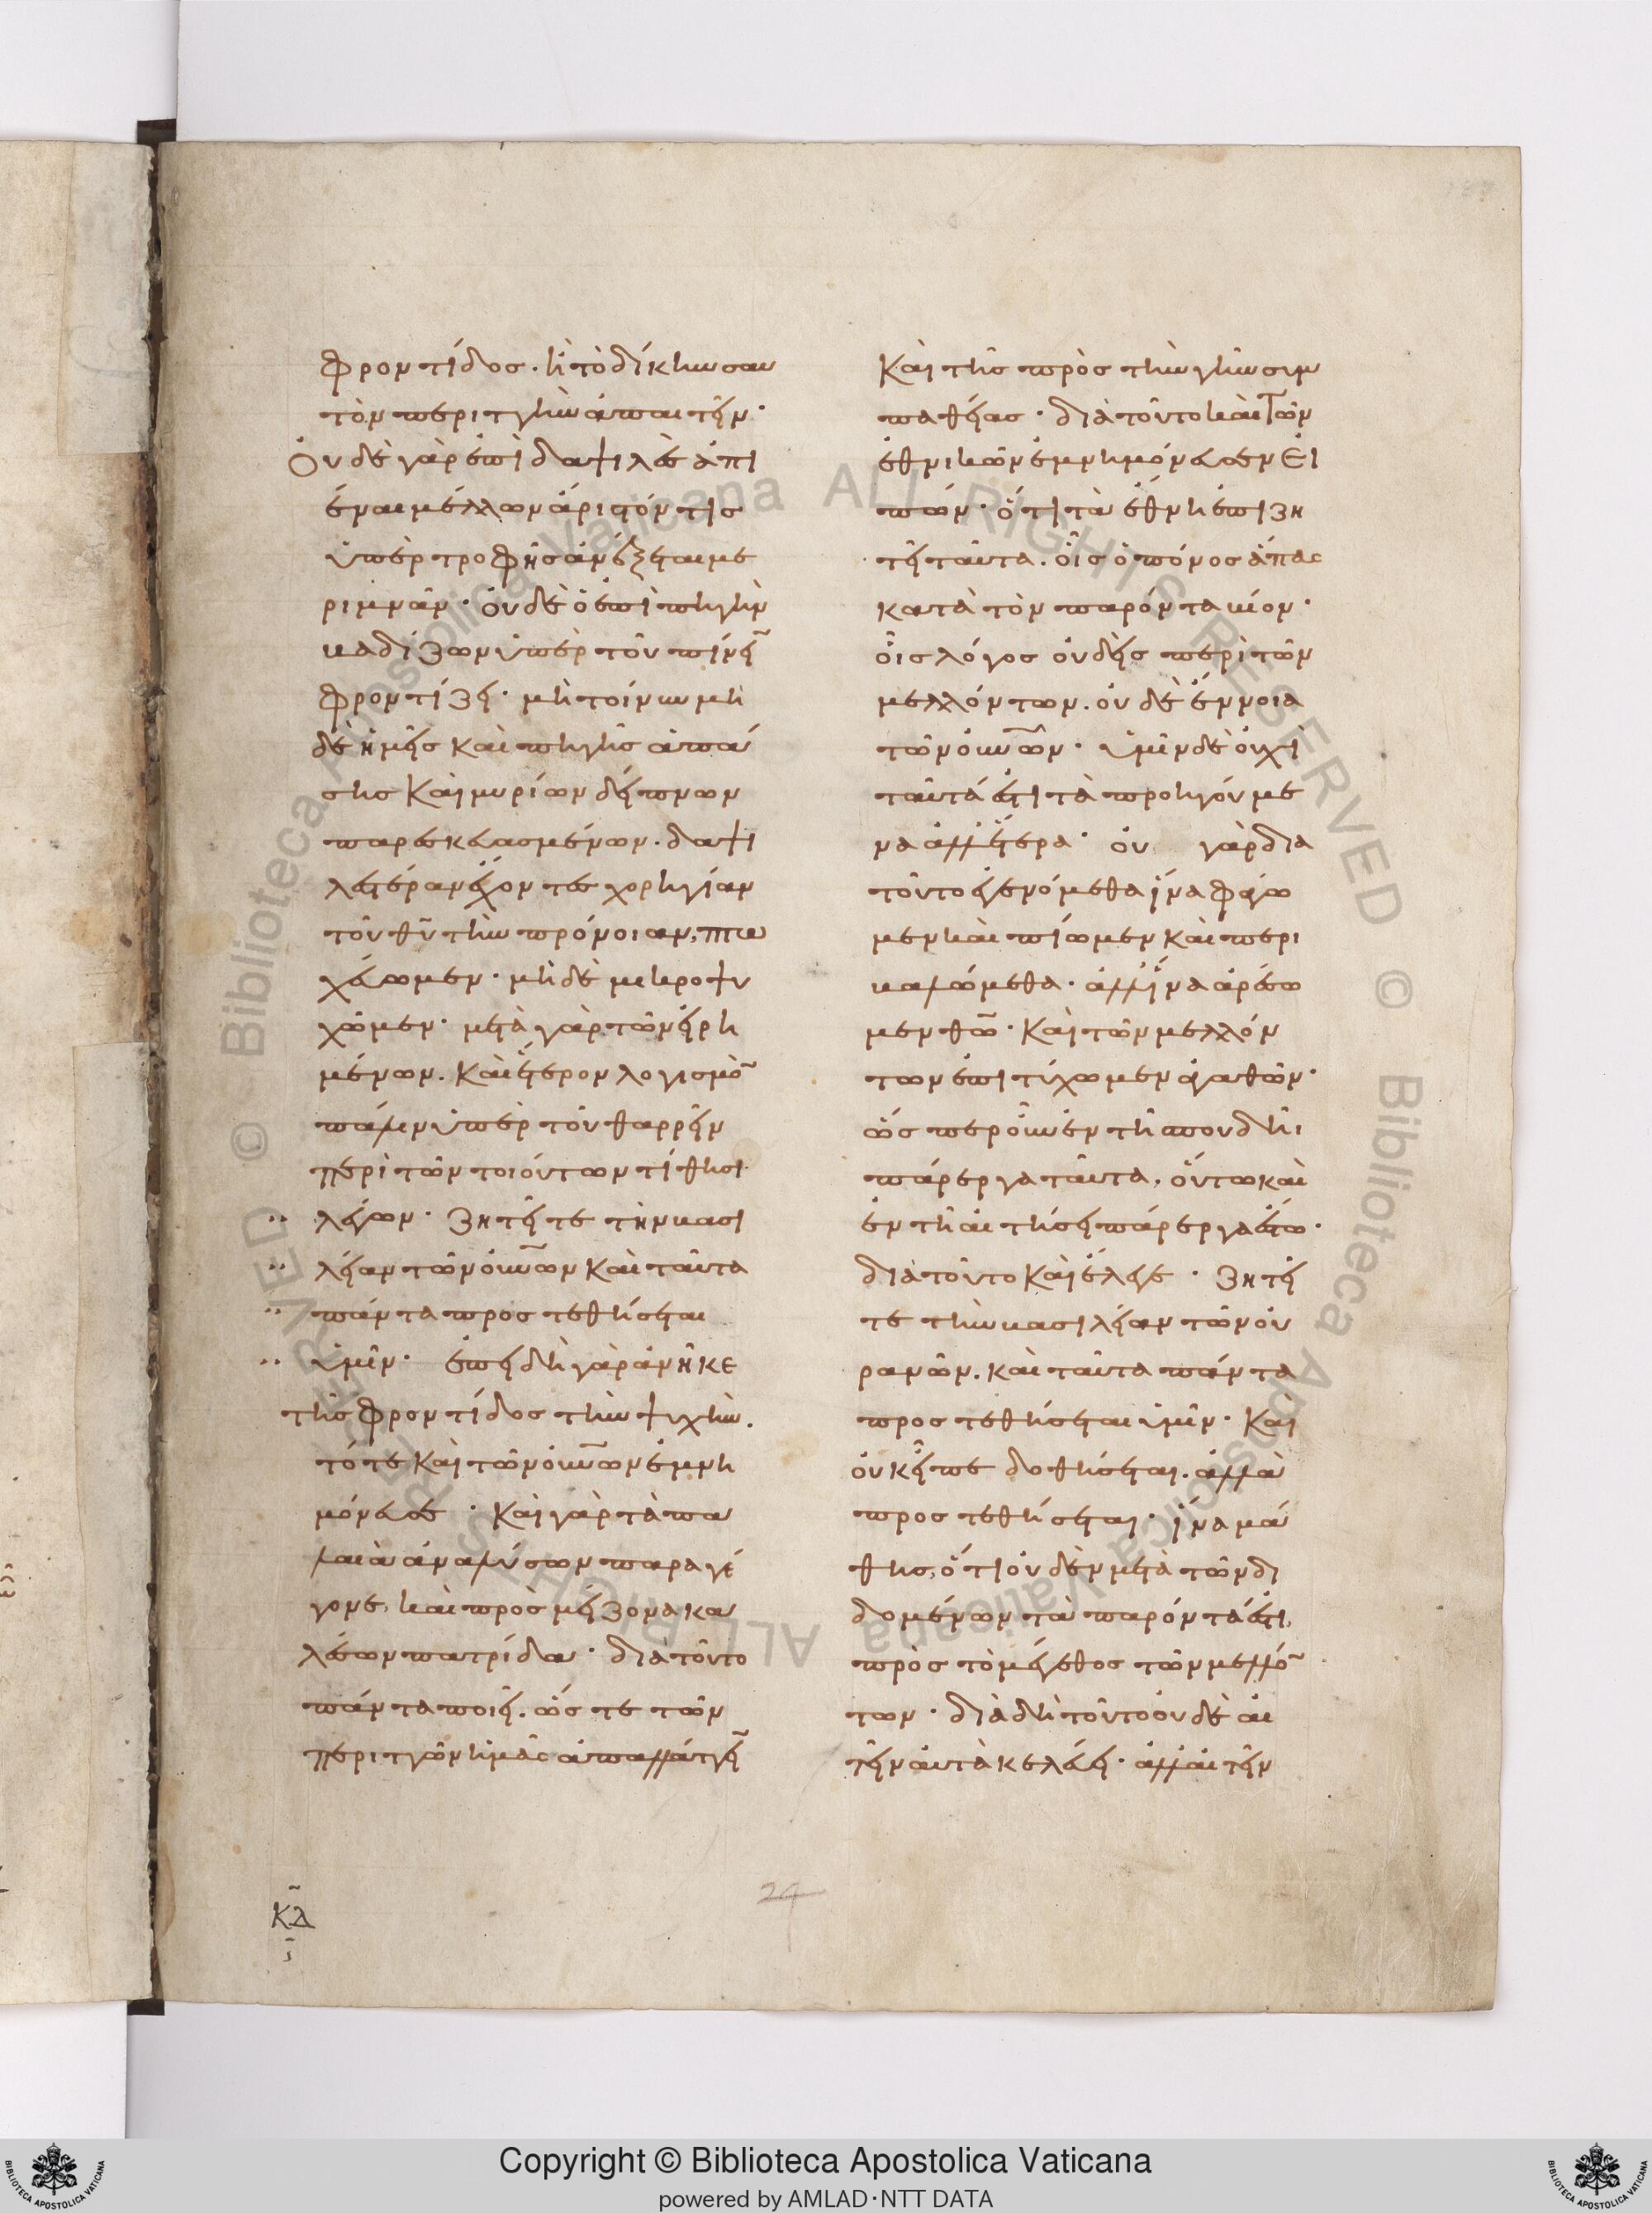 φροντίδος. ἢ τὸ δίκην σαυ
τὸν περιττὴν ἀπαιτεῖν·
Οὐδὲ γὰρ ἐπὶ δαψιλὲς ἀπι
έναι μέλλων ἄριστόν τις
ὑπὲρ τροφῆς ἀνέξεται με
ριμνᾶν· οὐδὲ ὁ ἐπὶ πηγὴν
βαδίζων ὑπὲρ τοῦ πίνει~
φροντίζει· μὴ τοίνυν μη
δὲ ἡμεῖς καὶ πηγῆς ἁπά
σης καὶ μυρίων δείπνων
παρεσκευασμένων. δαψι
λεστέραν ἔχοντες χορηγίαν
τοῦ θυ~ τὴν πρόνοιαν, πτω
χεύωμεν· μὴ δὲ μικροψυ
χῶμεν· μετὰ γὰρ τῶν εἰρη
μένων. Καὶ ἕτερον λογισμὸ~
πάλιν ὑπὲρ τοῦ θαρρεῖν
περὶ τῶν τοιούτων τίθησι
λέγων· Ζητεῖτε τὴν βασι
λείαν τῶν οὐνῶν καὶ ταῦτα
πάντα προστεθήσεται
ὑμῖν· ἐπειδὴ γὰρ ἀνῆκε
τῆς φροντίδος τὴν ψυχὴν.
τότε καὶ τῶν οὐνῶν ἐμνη
μόνευσε · Καὶ γὰρ τὰ πα
λαιὰ ἀναλύσων παραγέ
γονε, καὶ πρὸς μείζονα κα
λέσων πατρίδα· διὰ τοῦτο
πάντα ποιεῖ. ὥστε τῶν
περιττῶν ἡμᾶς ἀπαλλάττει~
Καὶ τῆς πρὸς τὴν γῆν συμ
παθείας · διὰ τοῦτο καὶ τῶν
ἐθνικῶν ἐμνημόνευσεν Εἰ
πών· ὅτι τὰ ἔθνη ἐπιζη
τεῖ ταῦτα. οἷς ὁ πόνος ἅπας
κατὰ τὸν παρόντα βίον·
οἷς λόγος οὐδεὶς περὶ τῶν
μελλόντων. οὐδὲ ἔννοια
τῶν οὐνῶν· ὑμῖν δὲ οὐχὶ
ταῦτά ἐστι τὰ προηγούμε
να ἀλλ' ἕτερα· οὐ γὰρ διὰ
τοῦτο ἐγενόμεθα ἵνα φάγω
μεν καὶ πίωμεν καὶ περι
βαλώμεθα· ἀλλ' ἵνα ἀρέσω
μεν θω~· Καὶ τῶν μελλόν
των ἐπιτύχωμεν ἀγαθῶν·
ὥσπερ οὖν ἐν τῆ σπουδῆι
πάρεργα ταῦτα, οὕτω καὶ
ἐν τῆ αἰτήσει πάρεργα ἔστω·
διὰ τοῦτο καὶ ἔλεγε · Ζητεῖ
τε τὴν βασιλείαν τῶν οὐ
ρανῶν. καὶ ταῦτα πάντα
προστεθήσεται ὑμῖν· Καὶ
οὐκ εἶπε δοθήσεται. ἀλλὰ
προστεθήσεται· ἵνα μά
θης, ὅτι οὐδὲν μετὰ τῶν δι
δομένων τὰ παρόντά ἐστι,
πρὸς τὸ μέγεθος τῶν μελλό~
των · διὰ δὴ τοῦτο οὐδὲ αἰ
τεῖν αὐτὰ κελεύει· ἀλλ' αἰτεῖν
24
κδ
Copyright © Biblioteca Apostolica Vaticana
powered by AMLAD·NTT DATA